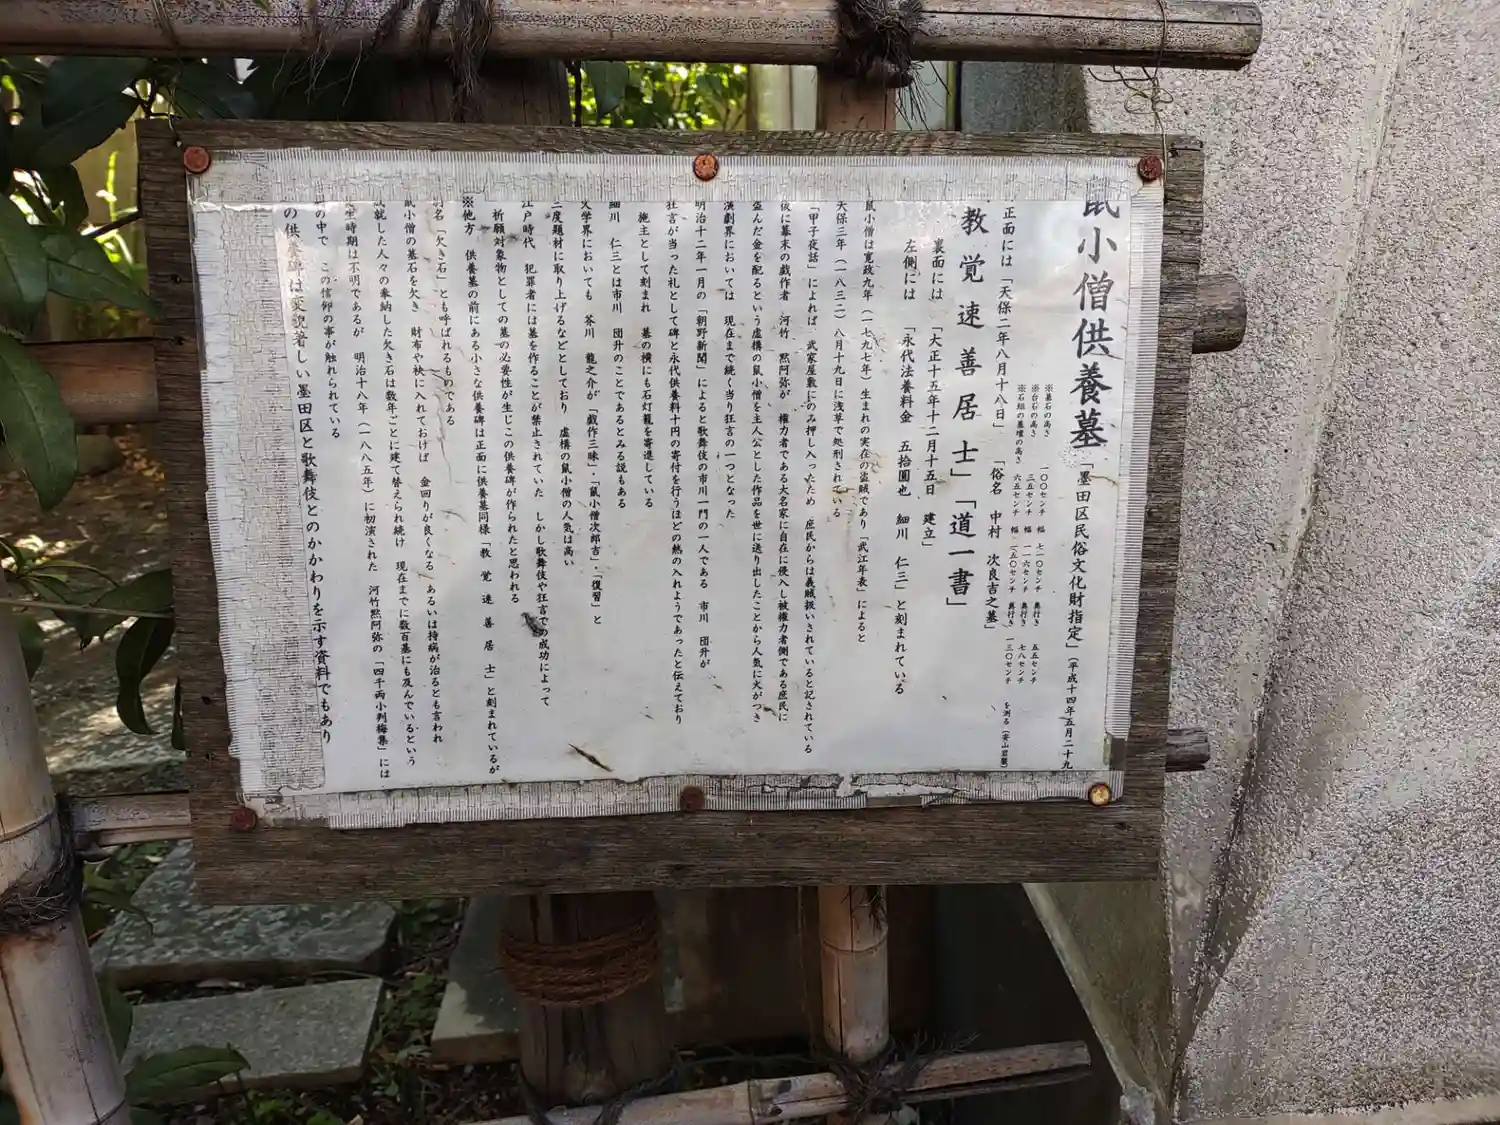 鼠小僧供養墓「墨田区民俗文化財指定」(平成十四年五月二十九
※墓石の高さ 一〇〇センチ 幅 七一〇センチ 奥行き 五五センチ
※台石の高さ 三五センチ 幅 一一六センチ 奥行き 七八センチ
※石組の墓壇の高さ 六五センチ 幅 二五〇センチ 奥行き 一三〇センチ を測る(安山岩製)
正面には「天保二年八月十八日」「俗名 中村 次良吉之墓」
教覚速善居士」「道一書」
裏面には「大正十五年十二月十五日 建立」
左側には 「永代法養料金 五拾圓也 細川 仁三」と刻まれている
鼠小僧は寛政九年(一七九七年)生まれの実在の盗賊であり「武江年表」によると
天保三年(一八三二)八月十九日に浅草で処刑されている
「甲子夜話」によれば 武家屋敷にのみ押し入ったため 庶民からは義賊扱いされていると記されている
後に幕末の戯作者 河竹 黙阿弥が 権力者である大名家に自在に侵入し被権力者側である庶民に
盗んだ金を配るという虚構の鼠小僧を主人公とした作品を世に送り出したことから人気に火がつき
演劇界においては 現在まで続く当り狂言の一つとなった
明治十二年一月の「朝野新聞」によると歌舞伎の市川一門の一人である 市川 団升が
狂言が当った礼として碑と永代供養料十円の寄付を行うほどの熱の入れようであったと伝えており
施主として刻まれ 墓の横にも石灯籠を寄進している
細川 仁三とは市川 団升のことであるとみる説もある
文学界においても 芥川 龍之介が「戯作三昧」・「鼠小僧次郎吉」・「復習」と
三度題材に取り上げるなどとしており 虚構の鼠小僧の人気は高い
江戸時代 犯罪者には墓を作ることが禁止されていた しかし歌舞伎や狂言での成功によって
祈願対象物としての墓の必要性が生じこの供養碑が作られたと思われる
※他方 供養墓の前にある小さな供養碑は正面に供養墓同様「教 覚 速 善 居 士」と刻まれているが
別名「欠き石」とも呼ばれるものである
鼠小僧の墓石を欠き 財布や袂に入れておけば 金回りが良くなる あるいは持病が治るとも言われ
成就した人々の奉納した欠き石は数年ごとに建て替えられ続け 現在までに数百墓にも及んでいるという
生時期は不明であるが 明治十八年(一八八五年)に初演された 河竹黙阿弥の「四千両小判梅集」には
の中で この信仰の事が触れられている
の供養碑は変貌著しい墨田区と歌舞伎とのかかわりを示す資料でもあり